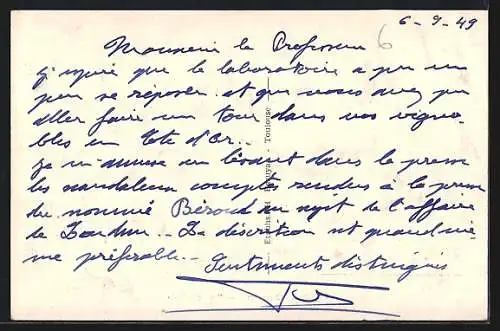 6 - 9 - 49
Monsieur le Professeur 6
J'espère que le laboratoire a pu un
peu se réposer et que vous avez pu
aller faire un tour dans vos vigno-
bles en Cote d'Or..
Je m'amuse en lisant dans la presse
les scandaleux comptes rendus à la presse
du nommé Béroud au sujet de l'affaire
de Loudun.. La discretion est quand mê-
me préférable..
Sentiments distingués
- Toulouse